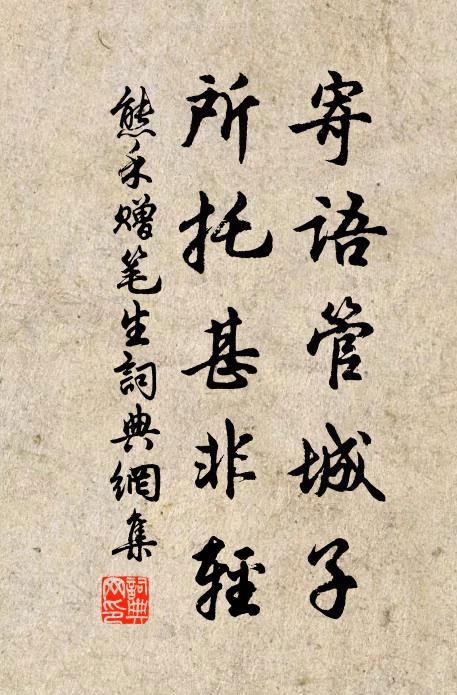 寄语管城子
所托甚非轻
熊禾赠笔生詞典網集
詞典
网印